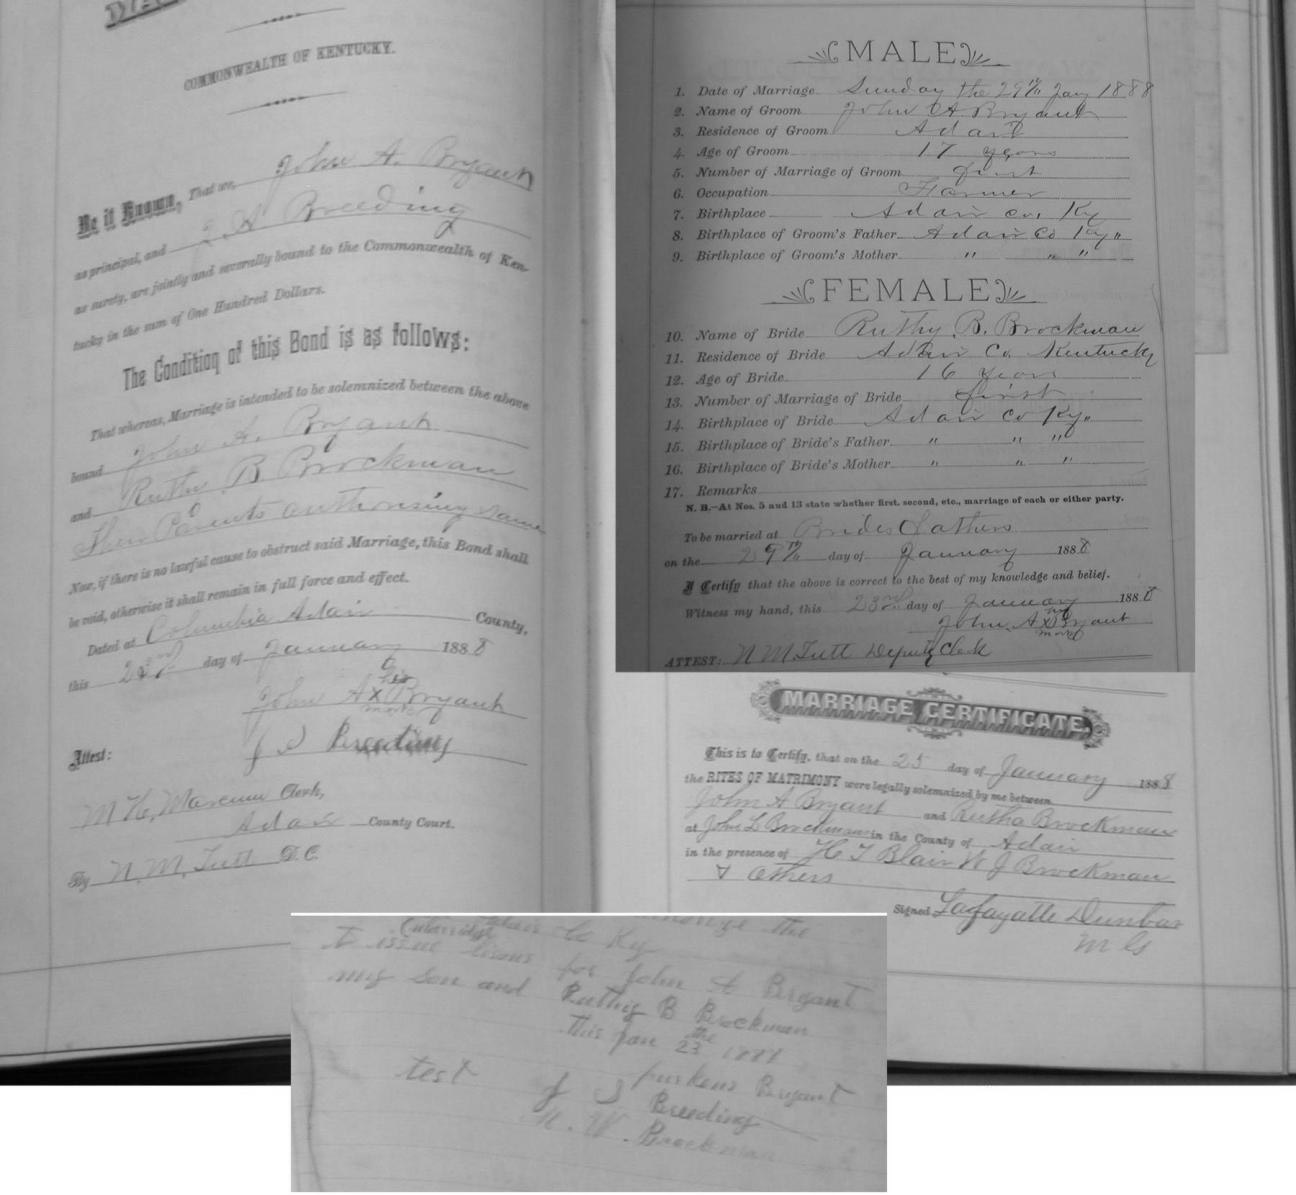 COMMONWEALTH OF KENTUCKY.
Be it Known, That we, John A. Bryant
as principal, and J S Breeding
as surety, are jointly and severally bound to the Commonwealth of Ken-
tucky in the sum of One Hundred Dollars.
The Condition of this Bond is as follows:
That whereas, Marriage is intended to be solemnized between the above
bound John A. Bryant
and Ruthy B Brockman
Their Parents authorising same
Now, if there is no lawful cause to obstruct said Marriage, this Bond shall
be void, otherwise it shall remain in full force and effect.
Dated at Columbia Adair County,
this 23rd day of January 1888
his
John A X Bryant
mark
J S Breeding
Attest:
M H, Marcum Clerk,
Adair County Court.
By N. M. Tutt D.C.
MALE
1. Date of Marriage Sunday the 29th Jany 1888
2. Name of Groom John A Bryant
3. Residence of Groom Adair
4. Age of Groom 17 years
5. Number of Marriage of Groom first
6. Occupation Farmer
7. Birthplace Adair co, Ky
8. Birthplace of Groom's Father Adair Co Ky "
9. Birthplace of Groom's Mother " " "
FEMALE
10. Name of Bride Ruthy B. Brockman
11. Residence of Bride Adair Co. Kentucky
12. Age of Bride 16 years
13. Number of Marriage of Bride first
14. Birthplace of Bride Adair co Ky "
15. Birthplace of Bride's Father " " "
16. Birthplace of Bride's Mother " " "
17. Remarks
N. B.—At Nos. 5 and 13 state whether first, second, etc., marriage of each or either party.
To be married at Brides fathers
on the 29th day of January 1888
I Certify that the above is correct to the best of my knowledge and belief.
Witness my hand, this 23rd day of January 1888
his
John. A X Bryant
mark
ATTEST: N M Tutt Deputy Clerk
MARRIAGE CERTIFICATE
This is to Certify, that on the 25 day of January 1888
the RITES OF MATRIMONY were legally solemnized by me between
John A Bryant and Rutha Brockman
at John L Brockmans in the County of Adair
in the presence of H T Blair W J Brockman
& Others
Signed Lafayatte Dunbar
M G
the
Co Ky
to issue for John A Bryant
my son and Ruthy B Brockman
this Jan 23 the 1888
Bryant
test J S Breeding
W. Brockman